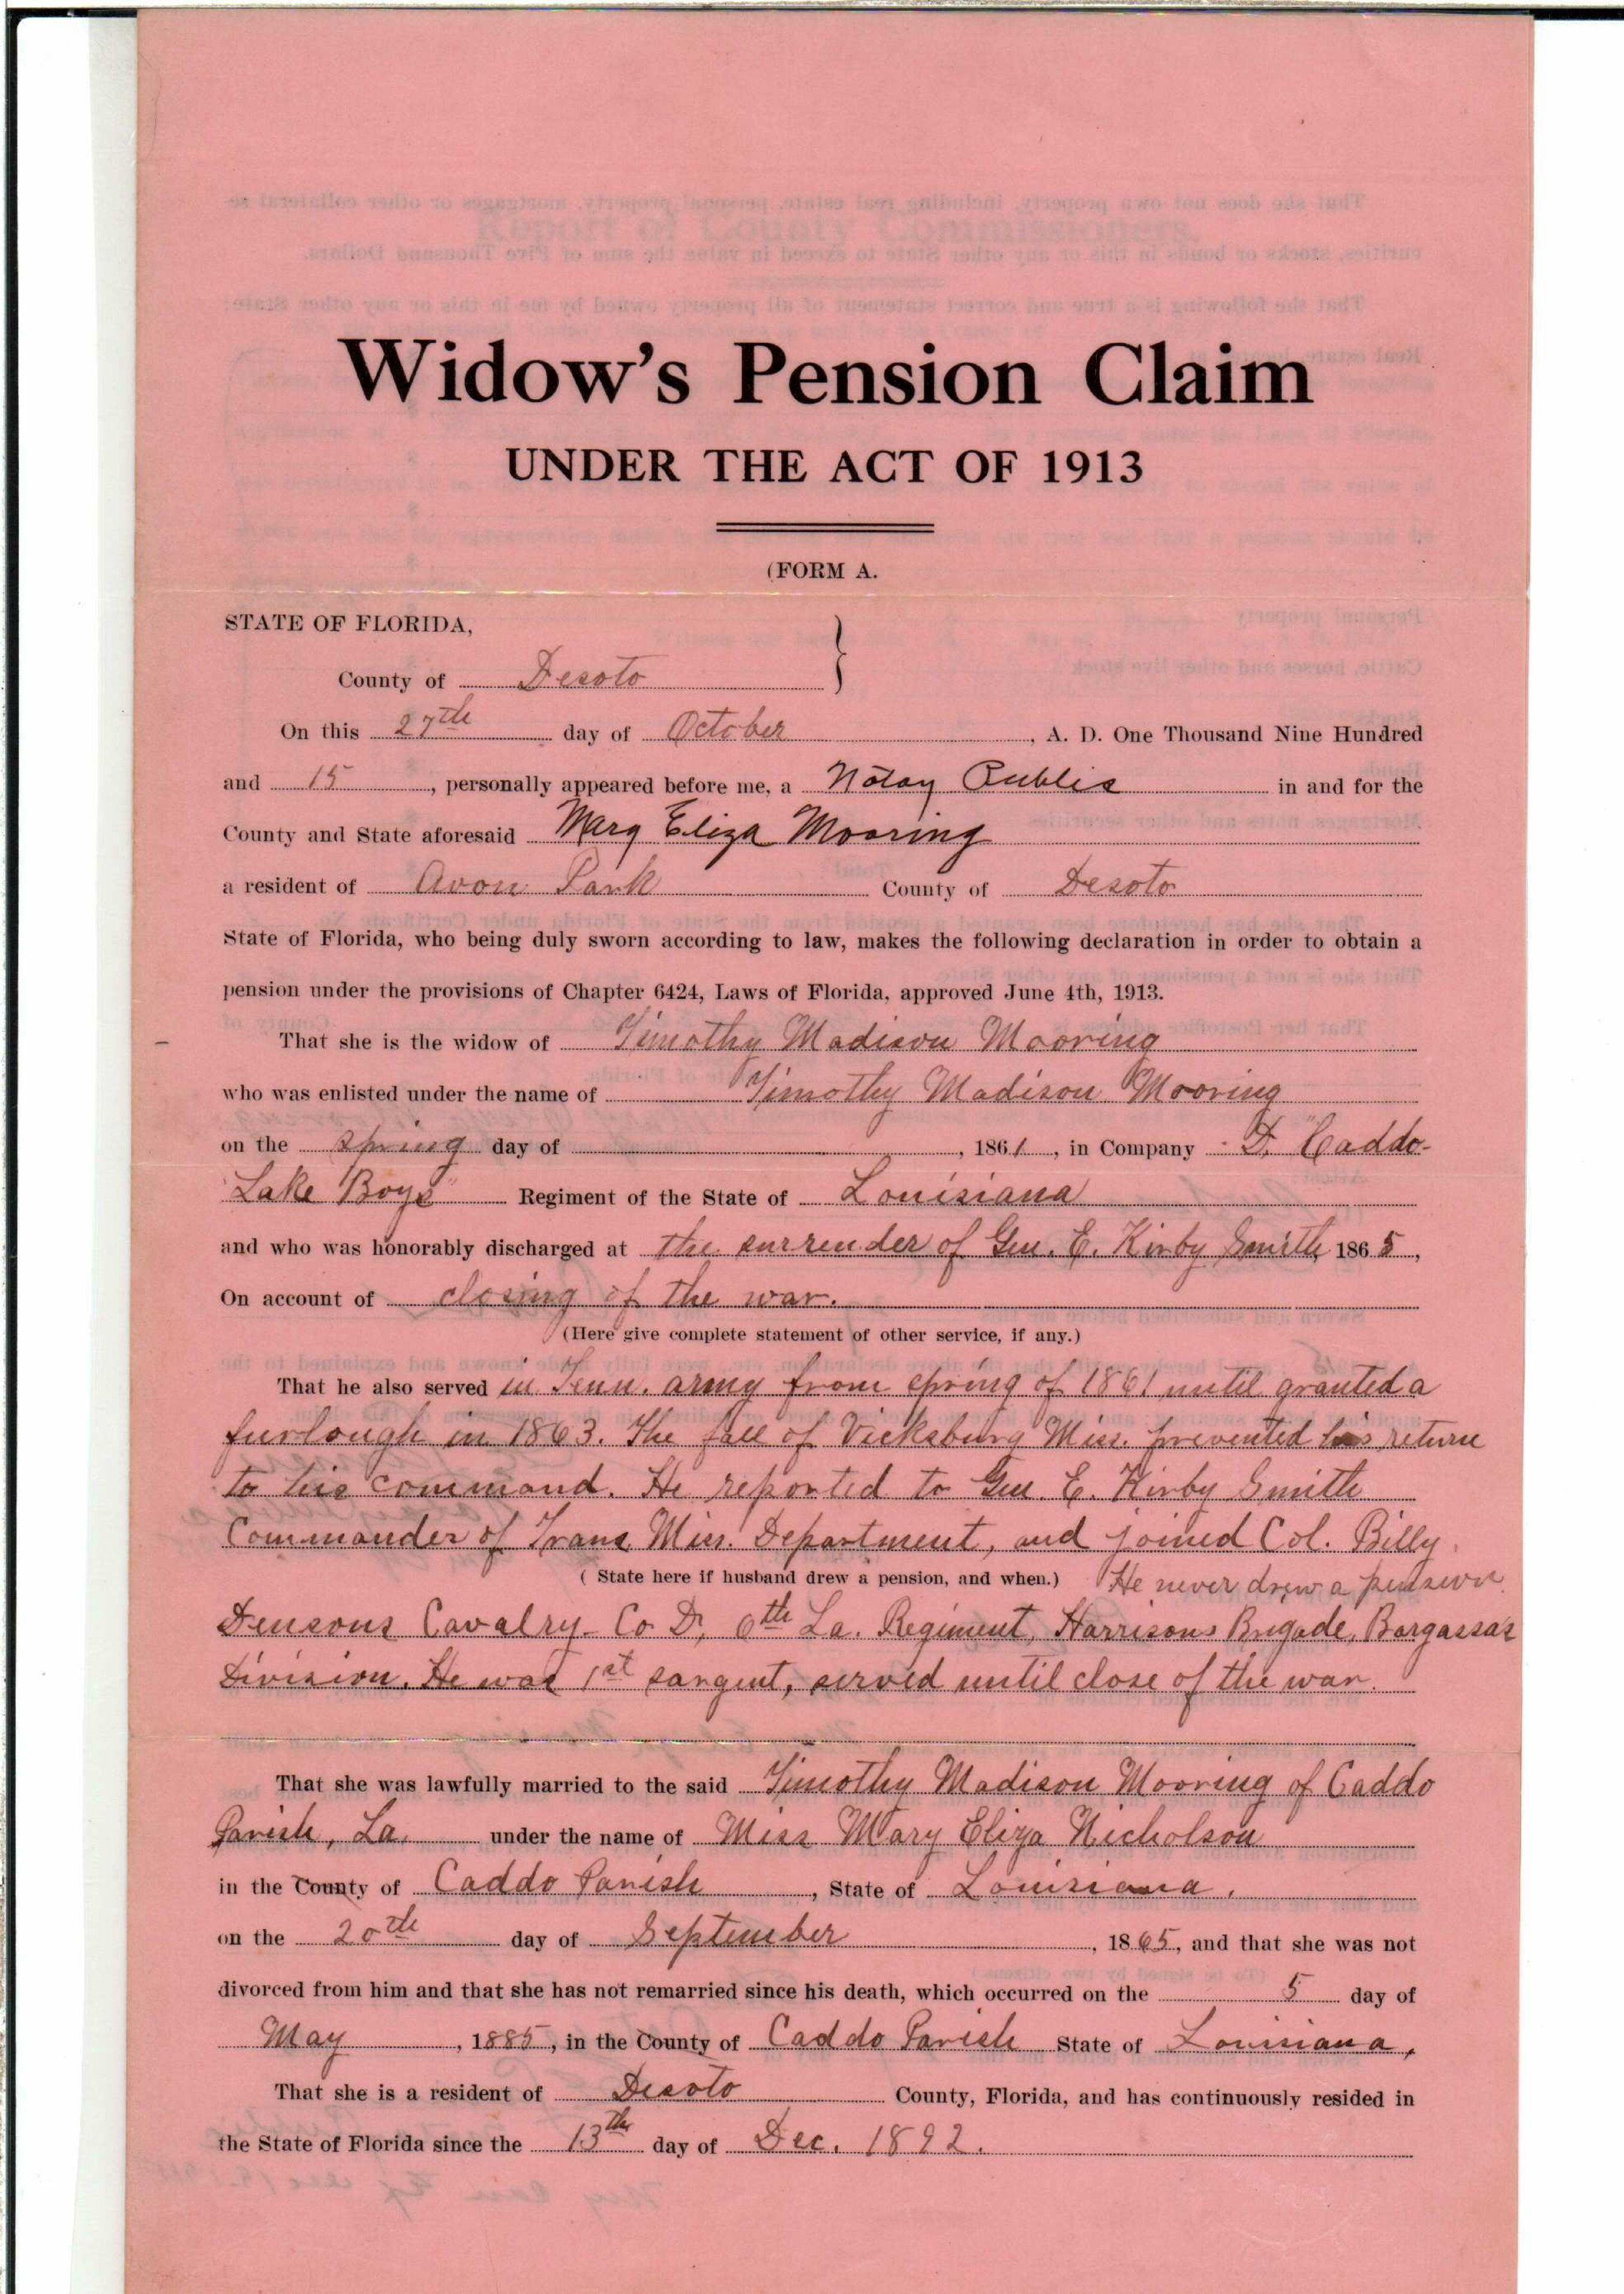 Widow's Pension Claim
UNDER THE ACT OF 1913
(FORM A.
STATE OF FLORIDA,
County of Desoto }
On this 27th day of October, A. D. One Thousand Nine Hundred
and 15, personally appeared before me, a Notay Public in and for the
County and State aforesaid Mary Eliza Mooring
a resident of Avon Park County of Desoto
State of Florida, who being duly sworn according to law, makes the following declaration in order to obtain a
pension under the provisions of Chapter 6424, Laws of Florida, approved June 4th, 1913.
That she is the widow of Timothy Madison Mooring
who was enlisted under the name of Timothy Madison Mooring
on the spring day of , 1861, in Company D. "Caddo-
Lake Boys" Regiment of the State of Louisiana
and who was honorably discharged at the surrender of Gen. E. Kirby Smith, 1865,
On account of closing of the war.
(Here give complete statement of other service, if any.)
That he also served in Tenn. army from spring of 1861 until granted a
furlough in 1863. The fall of Vicksburg Miss. prevented his return
to his command. He reported to Gen. E. Kirby Smith
Commander of Trans. Miss. Department, and joined Col. Billy
( State here if husband drew a pension, and when.) He never drew a pension.
Densons Cavalry- Co D, 6th La. Regiment, Harrisons Brigade, Bargassas
Division. He was 1st sargent, served until close of the war.
That she was lawfully married to the said Timothy Madison Mooring of Caddo
Parish, La. under the name of Miss Mary Eliza Nicholson
in the County of Caddo Parish, State of Louisiana.
on the 20th day of September, 1865, and that she was not
divorced from him and that she has not remarried since his death, which occurred on the 5 day of
May, 1885, in the County of Caddo Parish State of Louisiana,
That she is a resident of Desoto County, Florida, and has continuously resided in
the State of Florida since the 13th day of Dec. 1892.